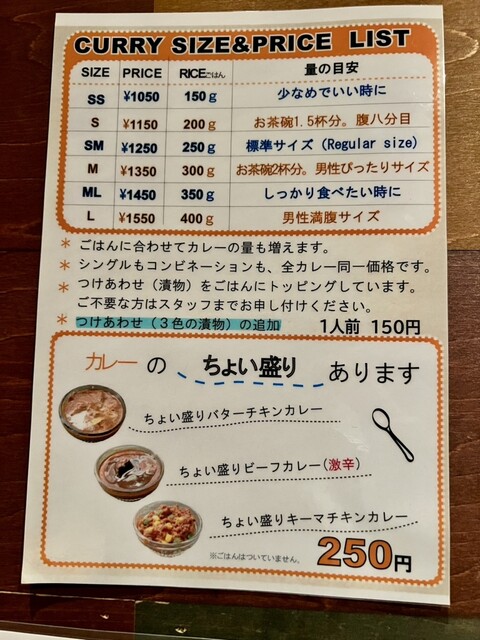 CURRY SIZE&PRICE LIST
SIZE PRICE RICEごはん 量の目安
SS ¥1050 150g 少なめでいい時に
S ¥1150 200g お茶碗1.5杯分。腹八分目
SM ¥1250 250g 標準サイズ (Regular size)
M ¥1350 300g お茶碗2杯分。男性ぴったりサイズ
ML ¥1450 350g しっかり食べたい時に
L ¥1550 400g 男性満腹サイズ
* ごはんに合わせてカレーの量も増えます。
* シングルもコンビネーションも、全カレー同一価格です。
* つけあわせ（漬物）をごはんにトッピングしています。
ご不要な方はスタッフまでお申し付けください。
* つけあわせ（3色の漬物）の追加 1人前 150円
カレーの ちょい盛り あります
ちょい盛りバターチキンカレー
ちょい盛りビーフカレー(激辛)
ちょい盛りキーマチキンカレー
※ごはんはついていません。 250円